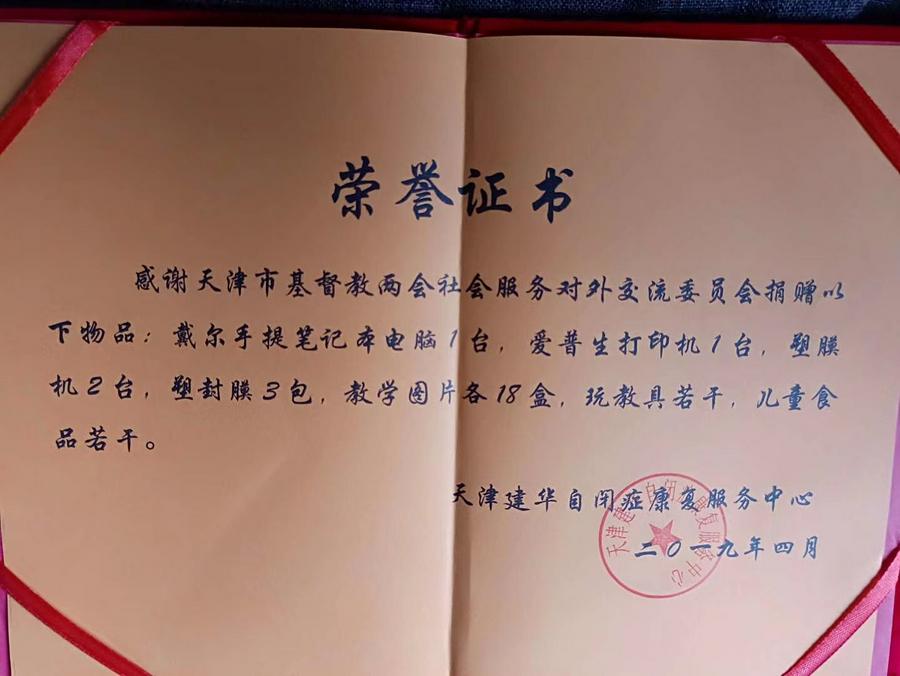 荣誉证书
感谢天津市基督教两会社会服务对外交流委员会捐赠以
下物品：戴尔手提笔记本电脑1台，爱普生打印机1台，塑膜
机2台，塑封膜3包，教学图片各18盒，玩教具若干，儿童食
品若干。
天津建华自闭症康复服务中心
二〇一九年四月
天津建华自闭症康复服务中心